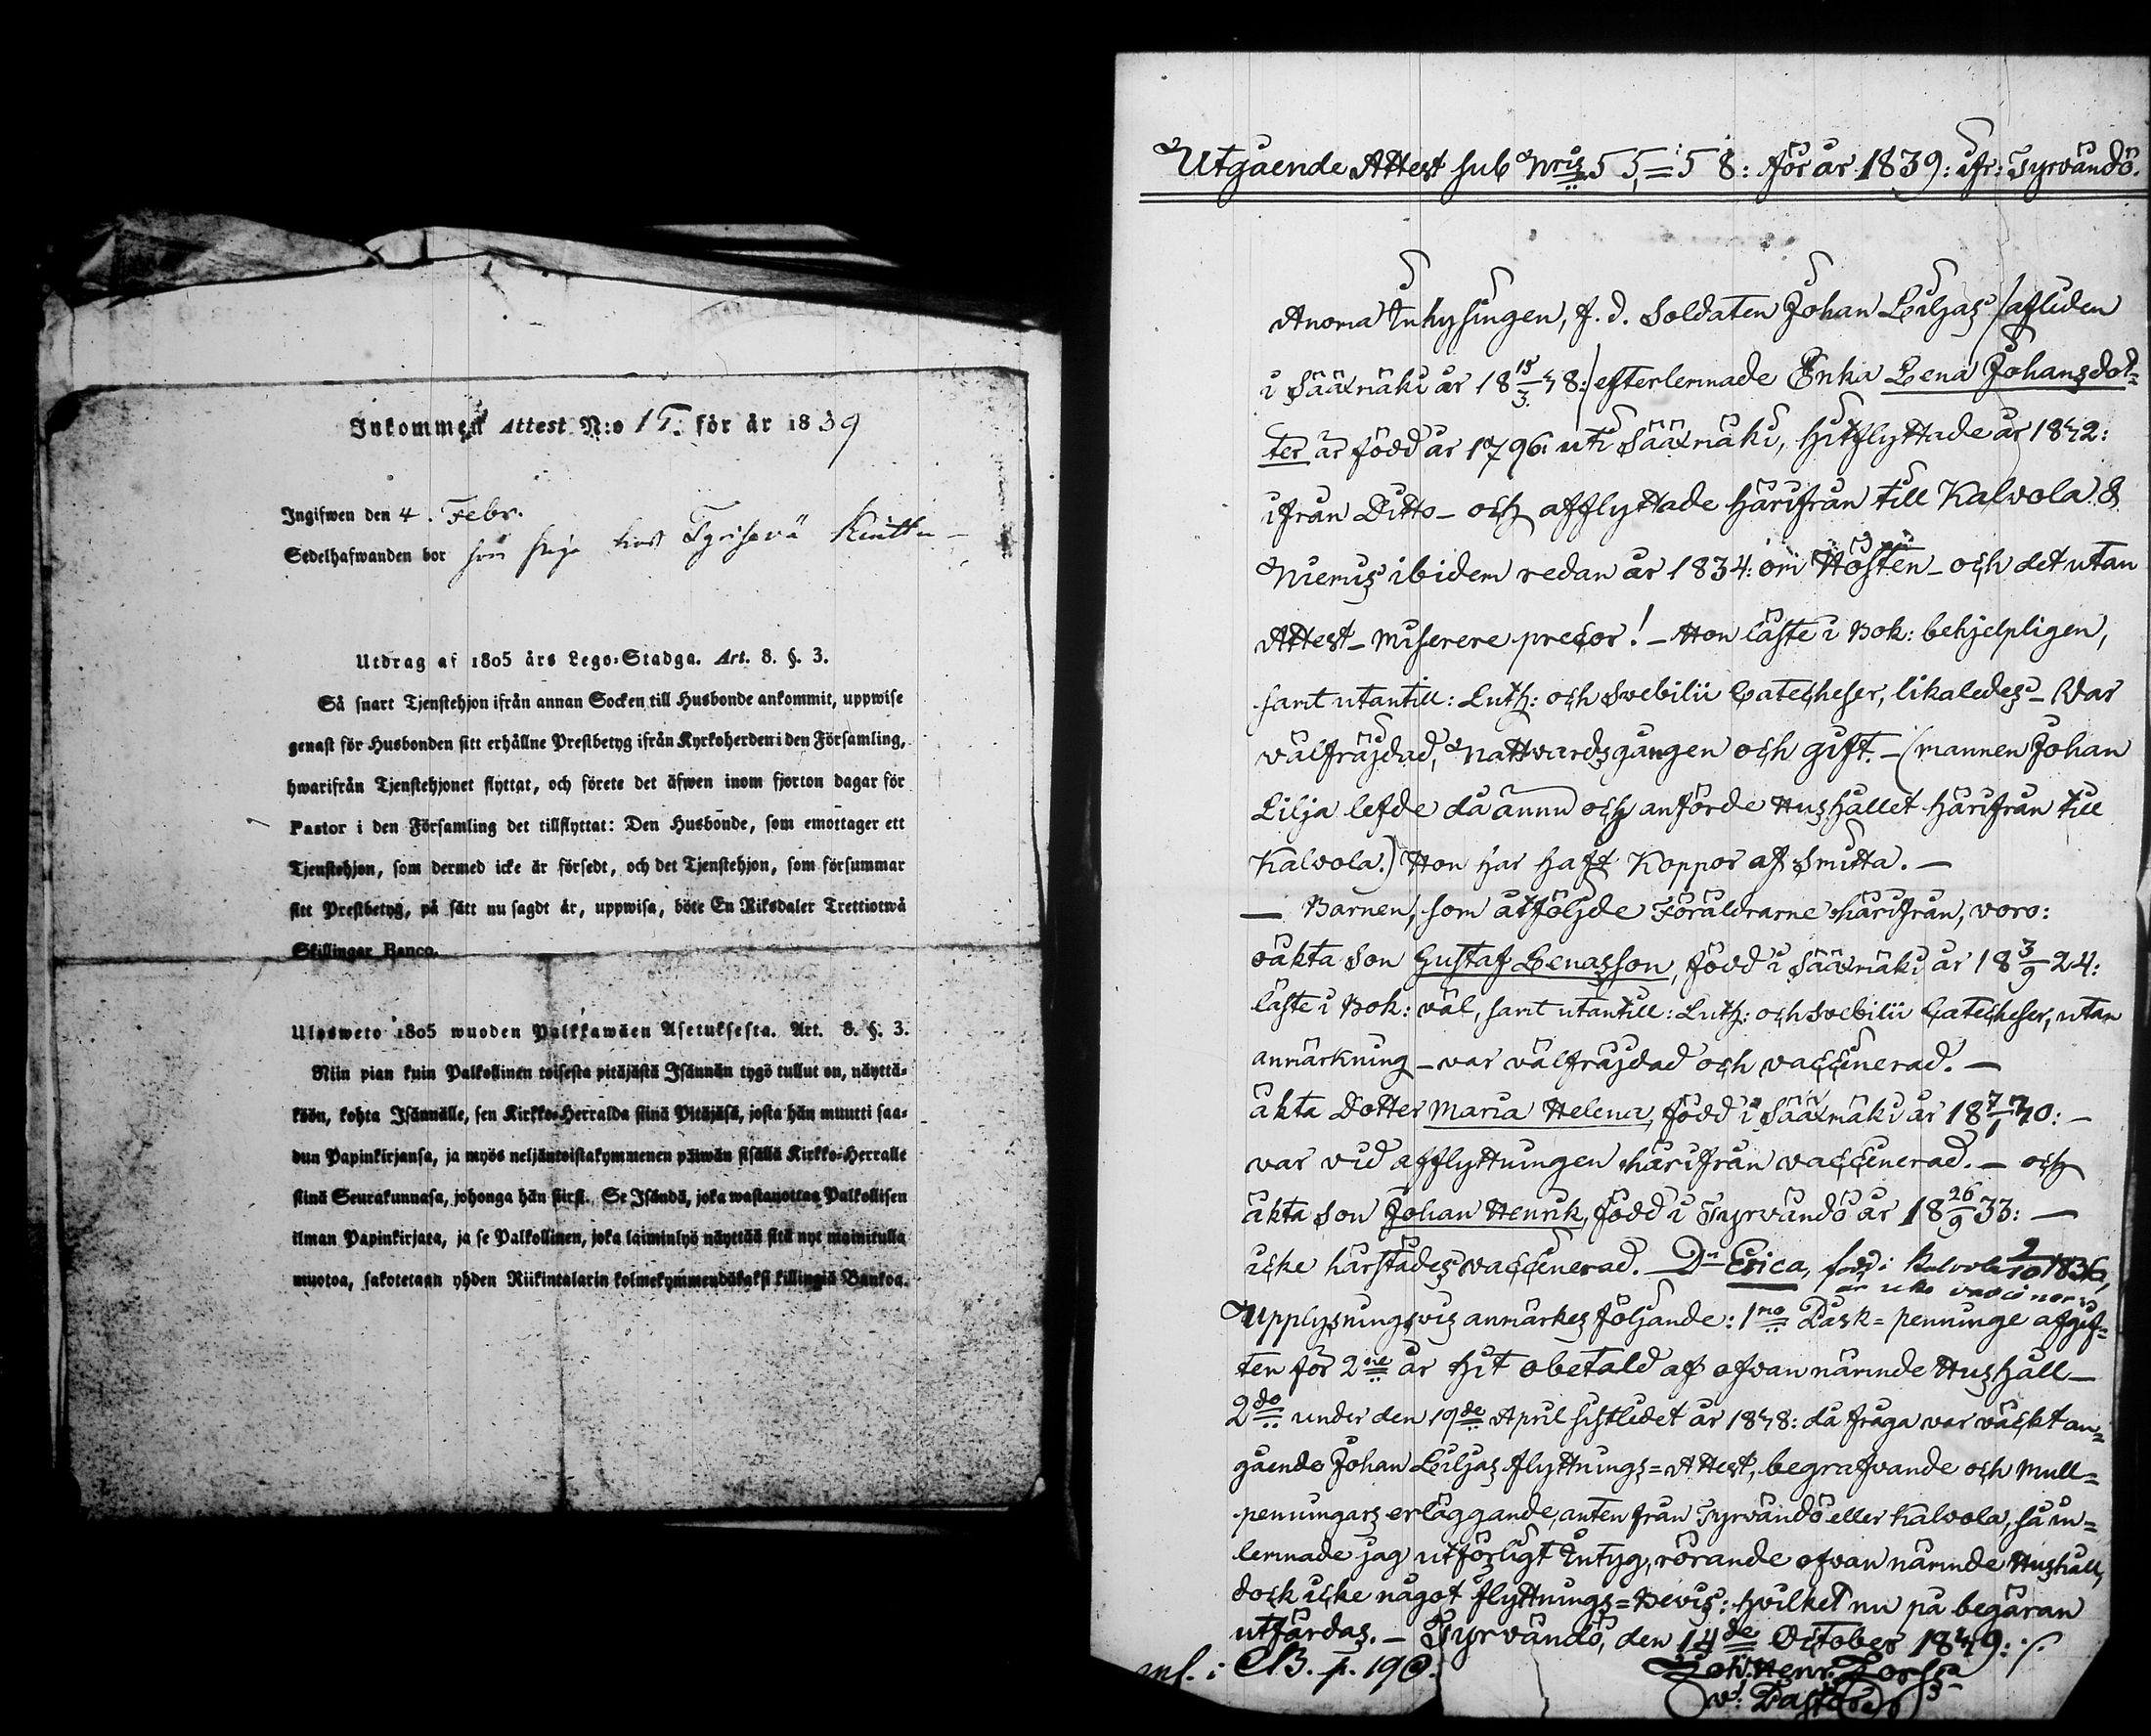 Inkommen Attest N:o 15. för år 1839
Ingifwen den 4. Febr.
Sedelhafwanden bor
Utdrag af 1805 års Lego-Stadga. Art. 8. §. 3.
Så snart Tjenstehjon ifrån annan Socken till Husbonde ankommit, uppwise
genast för Husbonden sitt erhållne Prestbetyg ifrån Kyrkoherden i den Församling,
hwarifrån Tjenstehjonet flyttat, och förete det äfwen inom fjorton dagar för
Pastor i den Församling det tillflyttat: Den Husbonde, som emottager ett
Tjenstehjon, som dermed icke är försedt, och det Tjenstehjon, som försummar
sitt Prestbetyg, på sätt nu sagdt är, uppwisa, böte En Riksdaler Trettiotwå
Skillingar Banco.
Ulosweto 1805 wuoden Palkkawäen Asetuksesta. Art. 8. §. 3.
Niin pian kuin Palkollinen toisesta pitäjästä Isännän tygö tullut on, näyttä-
köön, kohta Isännälle, sen Kirkko-Herralda siinä Pitäjäsä, josta hän muutti saa-
dun Papinkirjansa, ja myös neljäntoistakymmenen päiwän sisällä Kirkko-Herralle
siinä Seurakunnasa, johonga hän siirsi. Se Isändä, joka wastanottaa Palkollisen
ilman Papinkirjata, ja se Palkollinen, joka laiminlyö näyttää sitä nyt mainitulla
muotoa, sakotetaan yhden Riikintalarin kolmekymmendäkaksi killingiä Bankoa.
Utgående Attest sub Nris 55,=58: för år 1839: ifr: Tyrvändö.
Anoma Inhysingen, f. d. Soldaten Johan Liljas /afliden
i Sääxmäki år 18 15/3 38:/ efterlemnade Enka Lena Johansdot=
ter är född år 1796: uti Sääxmäki, hitflyttade år 1832:
ifrån Ditto – och afflyttade härifrån till Kalvola &
Niemis ibidem redan år 1834: om Hösten – och det utan
Attest – miserere precor! – Hon läste i Bok: behjelpligen,
samt utantill: Luth: och Svebilii Catecheser, likaledes – Var
välfräjdad, Nattvardsgången och gift. – (mannen Johan
Lilja lefde då ännu och anförde Hushållet härifrån till
Kalvola.) Hon har haft Koppor af Smitta. –
– Barnen, som åtföljde Föräldrarne härifrån, voro:
oäkta Son Gustaf Lenasson, född i Sääxmäki år 18 3/9 24:
läste i Bok: väl, samt utantill: Luth: och Svebilii Catecheser, utan
anmärkning – var välfräjdad och vaccinerad. –
äkta Dotter Maria Helena, född i Sääxmäki år 18 7/1 30: –
var vid afflyttningen härifrån vaccinerad. – och
äkta Son Johan Henrik, född i Tyrvändö år 18 26/9 33: –
icke härstädes vaccinerad. Dr Erica, född i Kalvola 9/10 1836,
är icke vaccinerad
Upplysningsvis anmärkes följande: 1mo Dask=penninge afgif=
ten för 2ne år hit obetald af ofvannämnde Hushåll –
2do under den 19de April sistledet år 1838: då fråga var väckt an=
gående Johan Liljas flyttnings=Attest, begrafvande och Mull=
penningars erläggande, anten från Tyrvändö eller Kalvola, så in=
lemnade jag utförligt Intyg, rörande ofvannämnde Hushåll,
dock icke något flyttnings=Bevis: hvilket nu på begäran
utfärdas. – Tyrvändö, den 14de October 1839: /.
inf. i CB. p. 190.
Joh: Henr:
v: Pastor